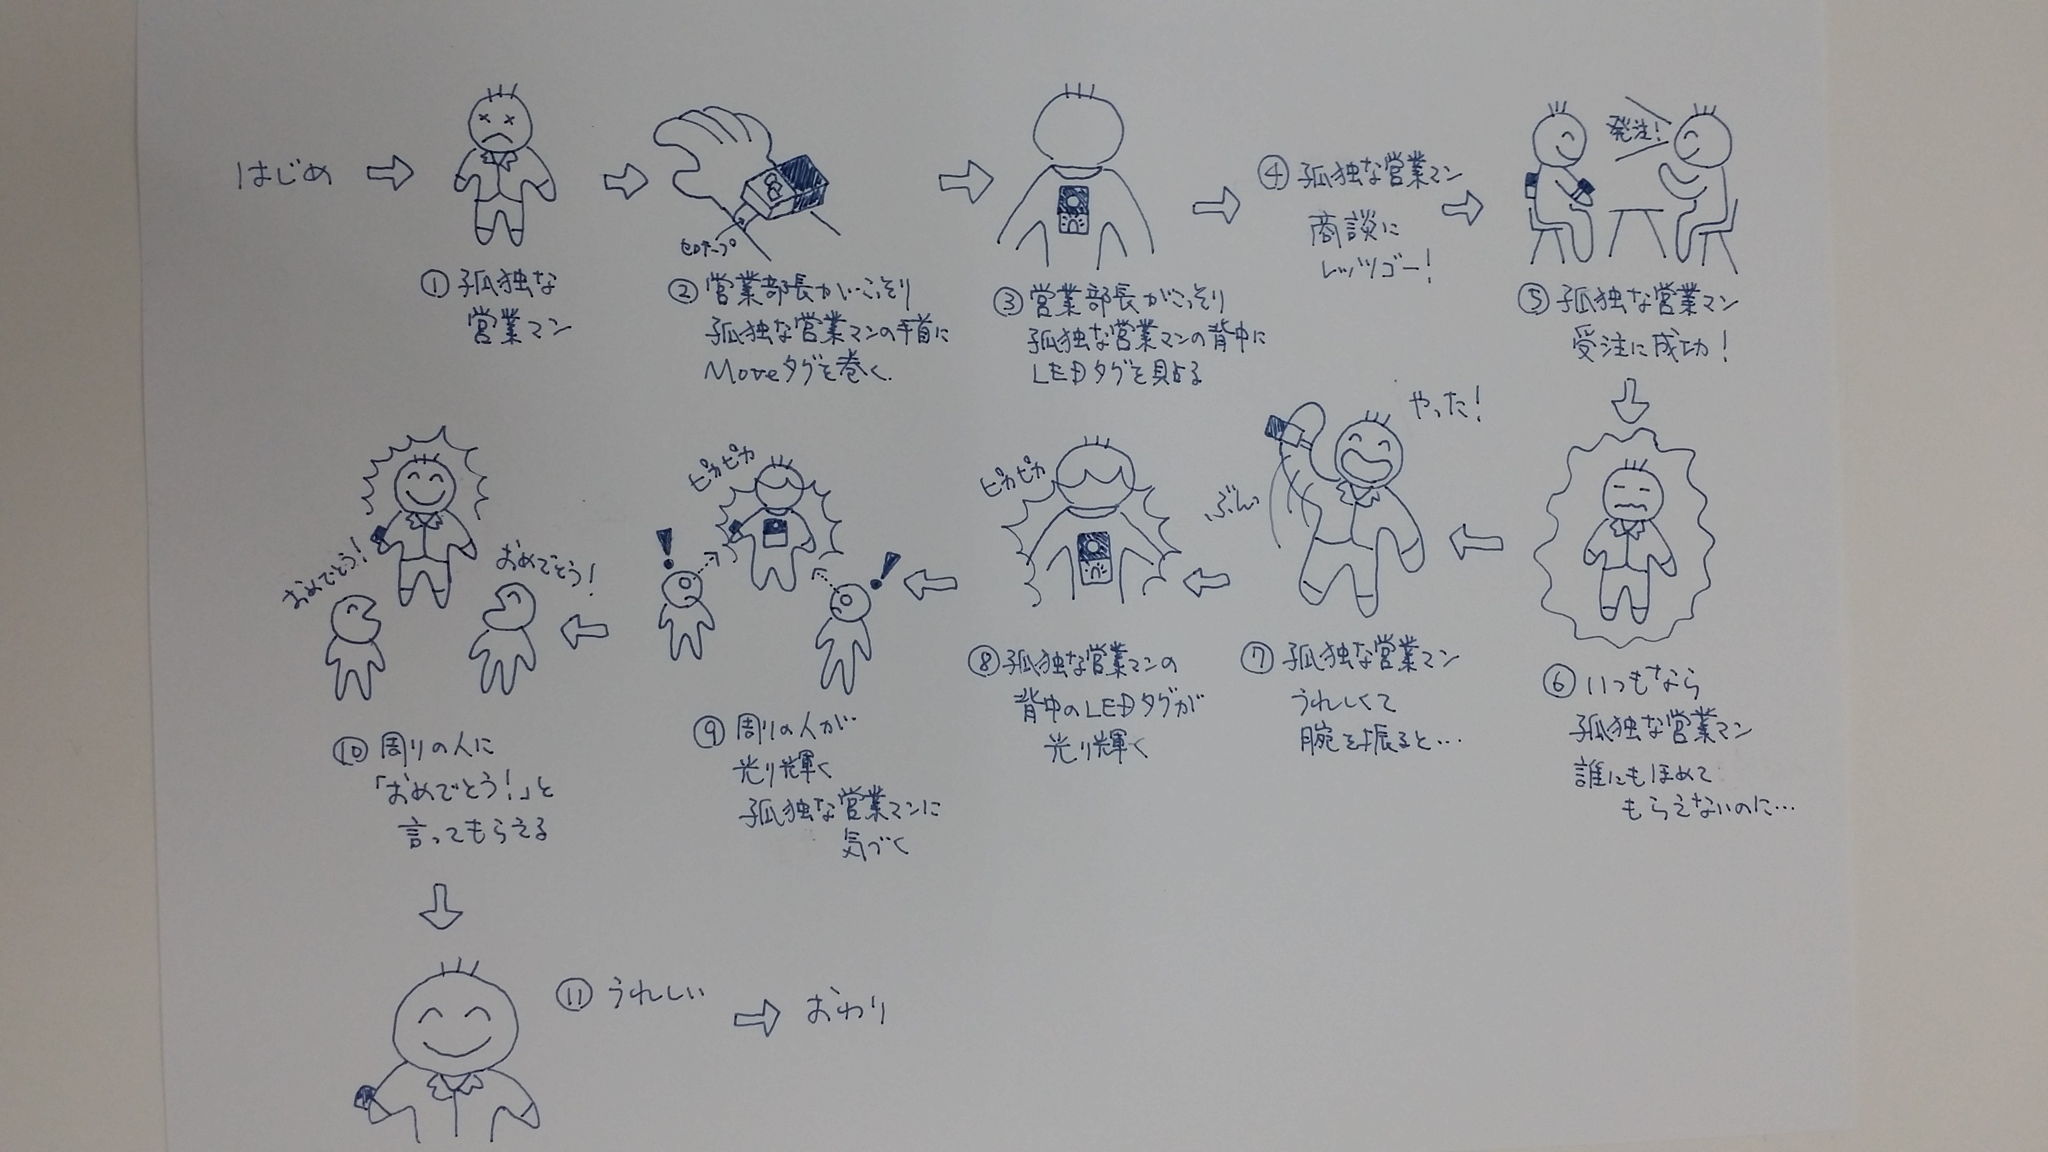 はじめ
①孤独な
営業マン
セロテープ
②営業部長がこっそり
孤独な営業マンの手首に
Moveタグを巻く.
③営業部長がこっそり
孤独な営業マンの背中に
LEDタグを貼る
④孤独な営業マン
商談に
レッツゴー!
発注!
⑤孤独な営業マン
受注に成功!
⑥いつもなら
孤独な営業マン
誰にもほめて
もらえないのに…
やった!
ぶん
⑦孤独な営業マン
うれしくて
腕を振ると…
ピカピカ
⑧孤独な営業マンの
背中のLEDタグが
光り輝く
ピカピカ
!
!
⑨周りの人が
光り輝く
孤独な営業マンに
気づく
おめでとう!
おめでとう!
⑩周りの人に
「おめでとう!」と
言ってもらえる
⑪うれしい
おわり